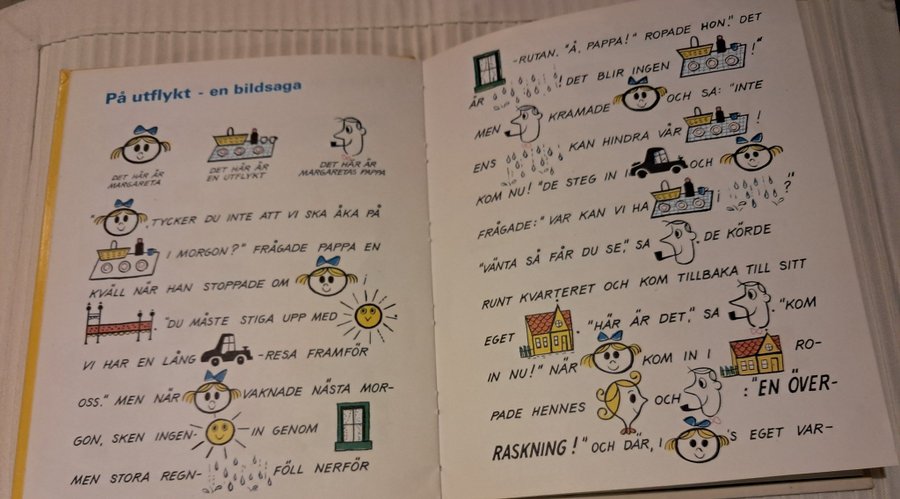 På utflykt - en bildsaga
DET HÄR ÄR
MARGARETA
DET HÄR ÄR
EN UTFLYKT
DET HÄR ÄR
MARGARETAS PAPPA
", TYCKER DU INTE ATT VI SKA ÅKA PÅ
I MORGON?" FRÅGADE PAPPA EN
KVÄLL NÄR HAN STOPPADE OM I
. "DU MÅSTE STIGA UPP MED
VI HAR EN LÅNG -RESA FRAMFÖR
OSS." MEN NÄR VAKNADE NÄSTA MOR-
GON, SKEN INGEN IN GENOM
MEN STORA REGN- FÖLL NERFÖR
-RUTAN. "Å, PAPPA!" ROPADE HON." DET
ÄR ! DET BLIR INGEN !"
MEN KRAMADE OCH SA: "INTE
ENS KAN HINDRA VÅR !
KOM NU!" DE STEG IN I OCH
FRÅGADE: "VAR KAN VI HA I ?"
"VÄNTA SÅ FÅR DU SE," SA . DE KÖRDE
RUNT KVARTERET OCH KOM TILLBAKA TILL SITT
EGET . "HÄR ÄR DET," SA . "KOM
IN NU!" NÄR KOM IN I RO-
PADE HENNES OCH : "EN ÖVER-
RASKNING!" OCH DÄR, I 'S EGET VAR-